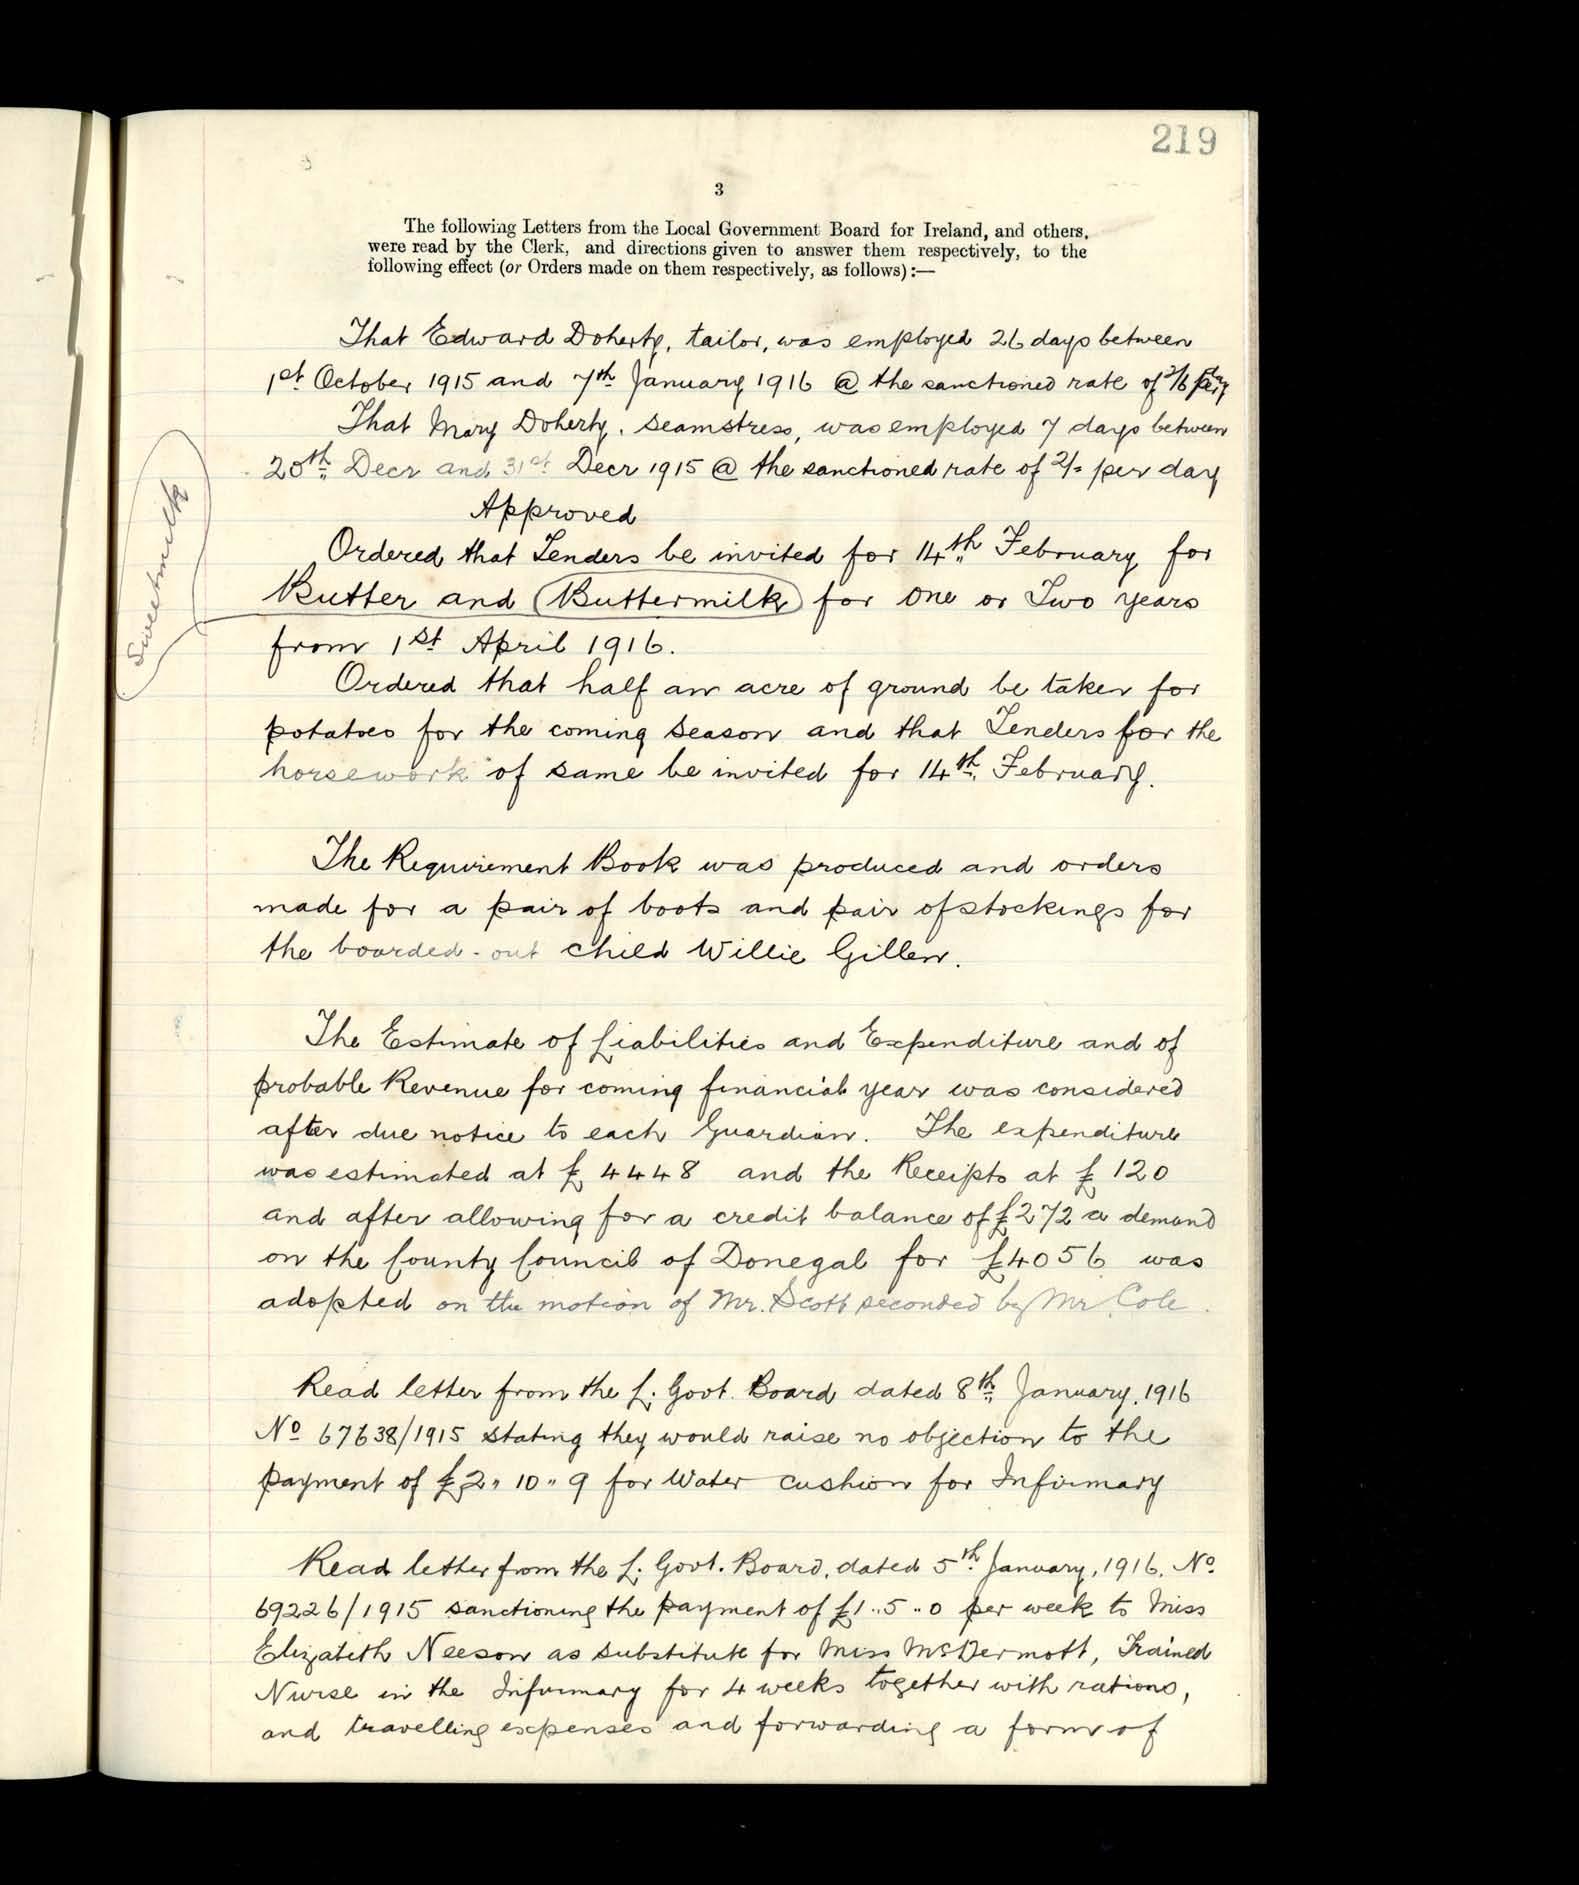 219
3
The following Letters from the Local Government Board for Ireland, and others,
were read by the Clerk, and directions given to answer them respectively, to the
following effect (or Orders made on them respectively, as follows):—
That Edward Doherty, tailor, was employed 26 days between
1st October 1915 and 7th January 1916 @ the sanctioned rate of 2/6 per day
That Mary Doherty, seamstress, was employed 7 days between
Decr and 31st Decr 1915 @ the sanctioned rate of 2/= per day
Approved
Ordered that Tenders be invited for 14th February for
Butter and Buttermilk for One or Two years
Sweetmilk
from 1st April 1916.
Ordered that half an acre of ground be taken for
potatoes for the coming season and that Tenders for the
horsework of same be invited for 14th February.
The Requirement Book was produced and orders
made for a pair of boots and pair of stockings for
the boarded-out child Willie Gillen.
The Estimate of Liabilities and Expenditure and of
probable Revenue for coming financial year was considered
after due notice to each Guardian. The expenditure
was estimated at £4448 and the Receipts at £120
and after allowing for a credit balance of £272 a demand
on the County Council of Donegal for £4056 was
adopted on the motion of Mr. Scott seconded by Mr Cole.
Read letter from the L. Govt. Board dated 8th January, 1916
No 67638/1915 stating they would raise no objection to the
payment of £2"10"9 for Water cushion for Infirmary
Read letter from the L. Govt. Board, dated 5th January, 1916, No
69226/1915 sanctioning the payment of £1..5..0 per week to Miss
Elizabeth Neeson as substitute for Miss McDermott, Trained
Nurse in the Infirmary for 4 weeks together with rations,
and travelling expenses and forwarding a form of